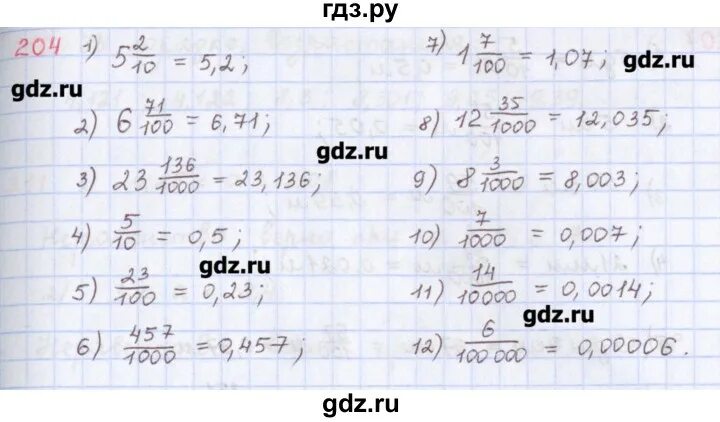 гдз.ру
204 1) 5 2/10 = 5,2;
2) 6 71/100 = 6,71;
3) 23 136/1000 = 23,136;
4) 5/10 = 0,5;
5) 23/100 = 0,23;
6) 457/1000 = 0,457;
7) 1 7/100 = 1,07;
8) 12 35/1000 = 12,035;
9) 8 3/1000 = 8,003;
10) 7/1000 = 0,007;
11) 14/10000 = 0,0014;
12) 6/100 000 = 0,00006.
gdz.ru
gdz.ru
gdz.ru
gdz.ru
gdz.ru
gdz.ru